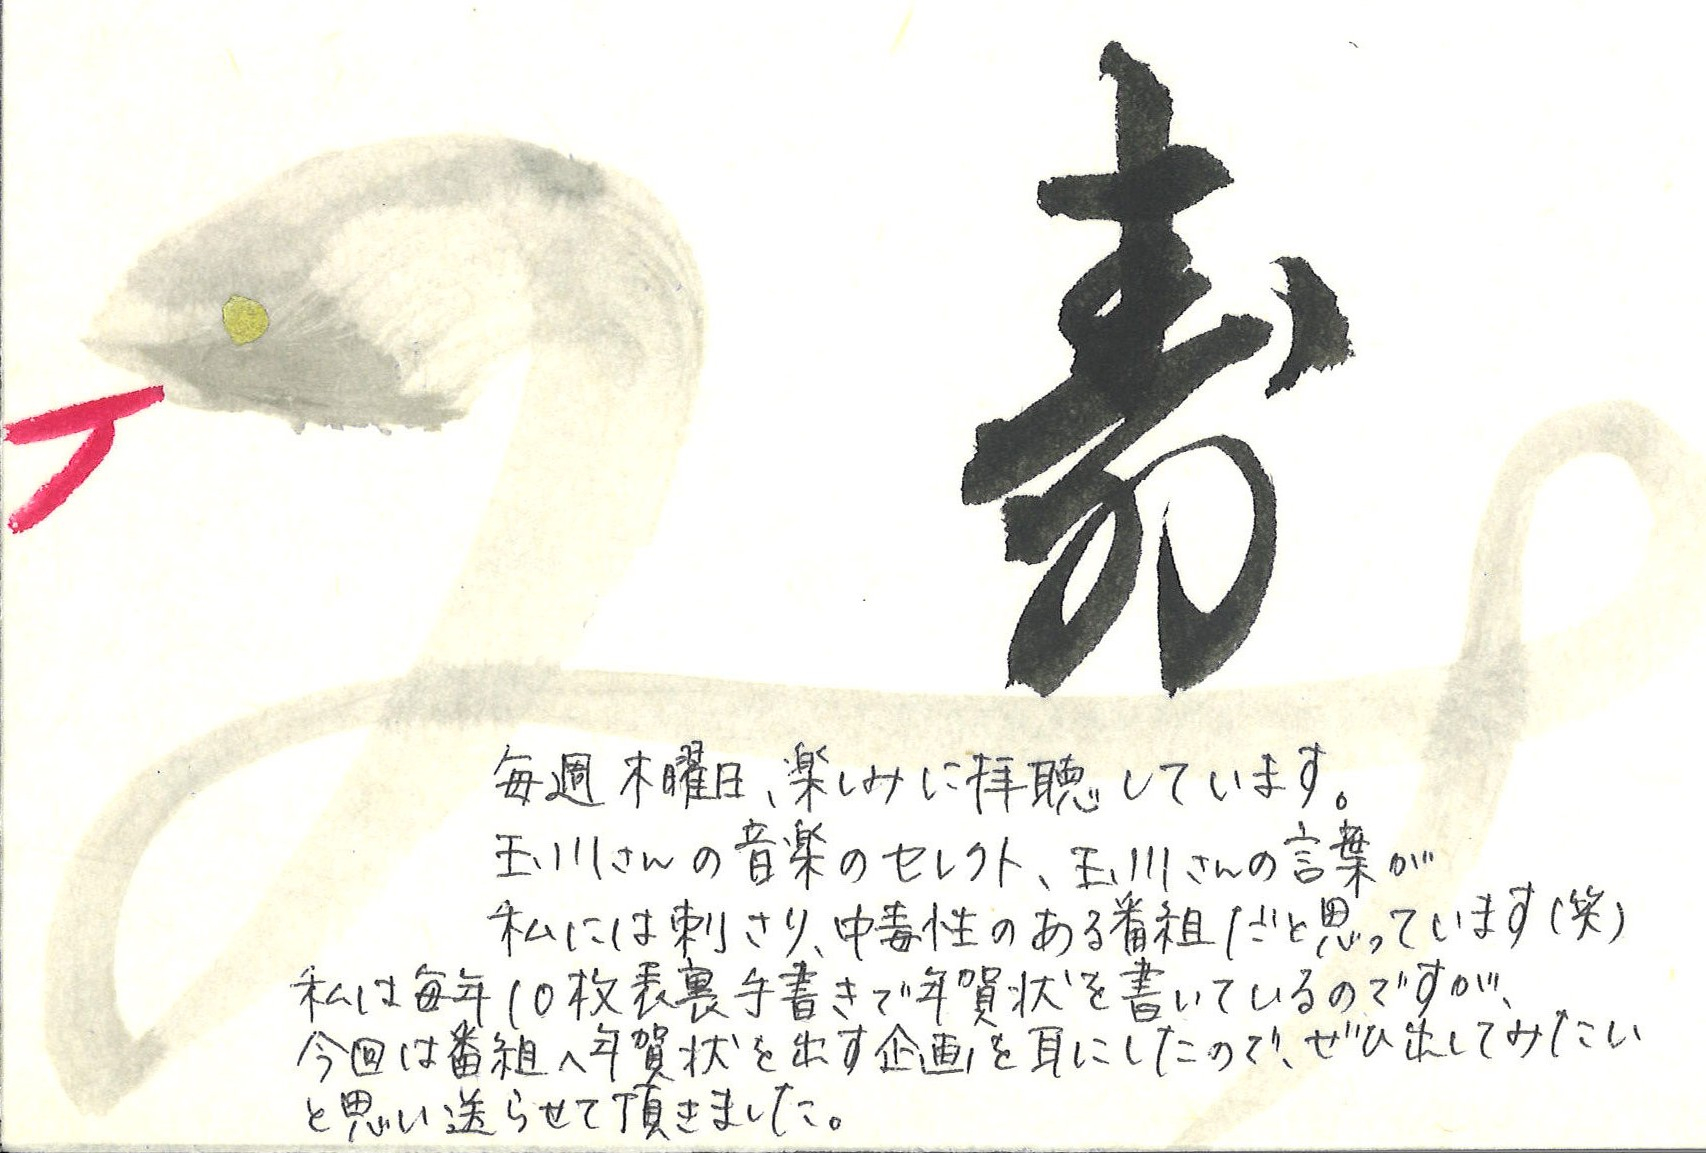 寿
毎週木曜日、楽しみに拝聴しています。
玉川さんの音楽のセレクト、玉川さんの言葉が
私には刺さり、中毒性のある番組だと思っています(笑)
私は毎年10枚表裏手書きで年賀状を書いているのですが、
今回は番組へ年賀状を出す企画を耳にしたので、ぜひ出してみたい
と思い送らせて頂きました。